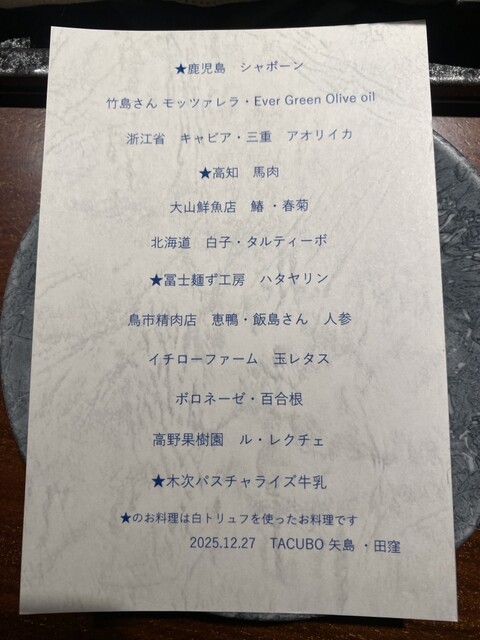 ★鹿児島　シャポーン
竹島さん モッツァレラ・Ever Green Olive oil
浙江省　キャビア・三重　アオリイカ
★高知　馬肉
大山鮮魚店　鰆 ・春菊
北海道　白子・タルティーボ
★冨士麺ず工房　ハタヤリン
鳥市精肉店　恵鴨・飯島さん　人参
イチローファーム　玉レタス
ボロネーゼ・百合根
高野果樹園　ル・レクチェ
★木次パスチャライズ牛乳
★のお料理は白トリュフを使ったお料理です
2025.12.27　TACUBO 矢島 ・田窪